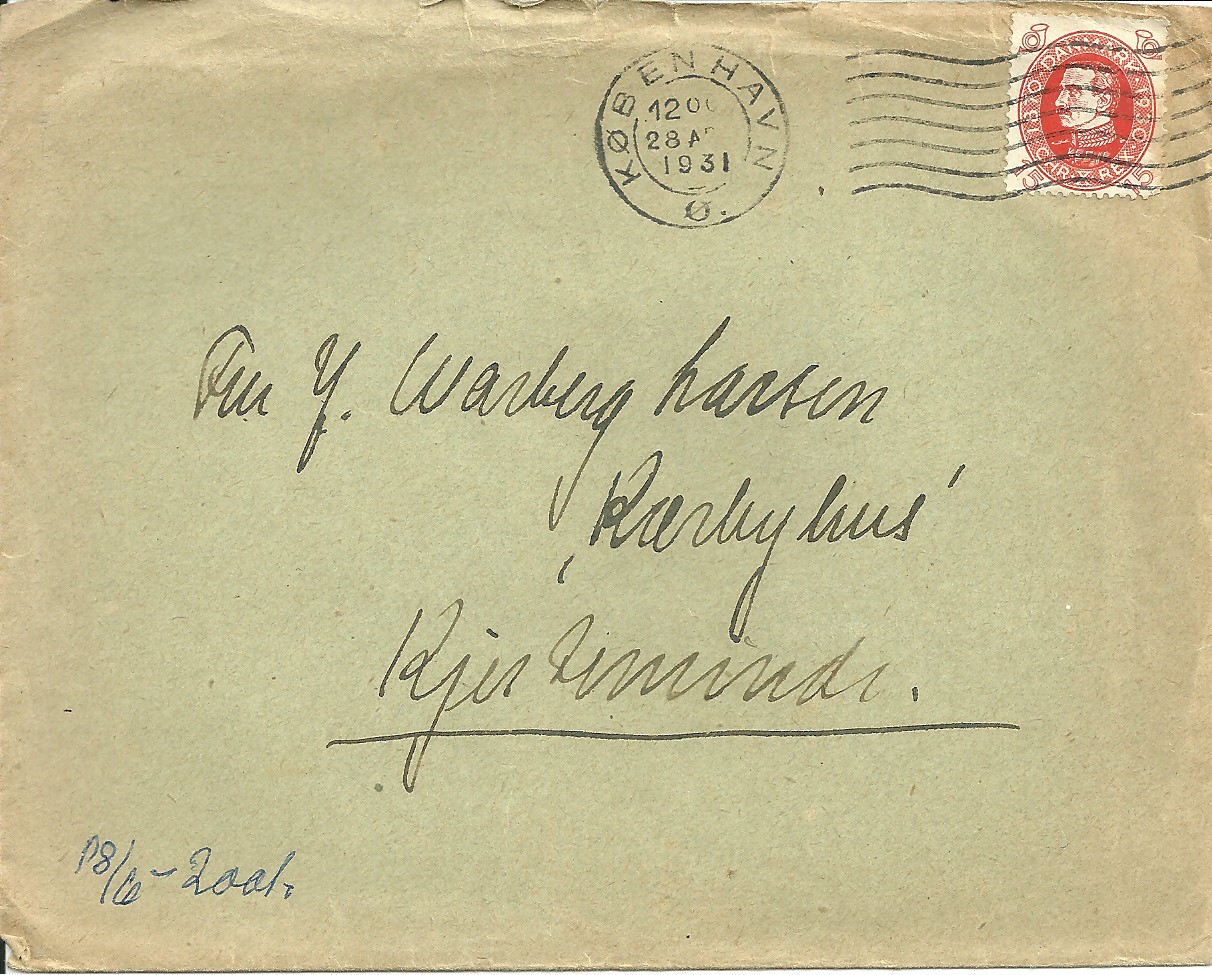 KØBENHAVN
1200
28 A
1931
Ø.
DANMARK
15 ØRE 15
Fru J. Warberg Larsen
‚Kærbyhus'
Kjerteminde.
18/6-2001.